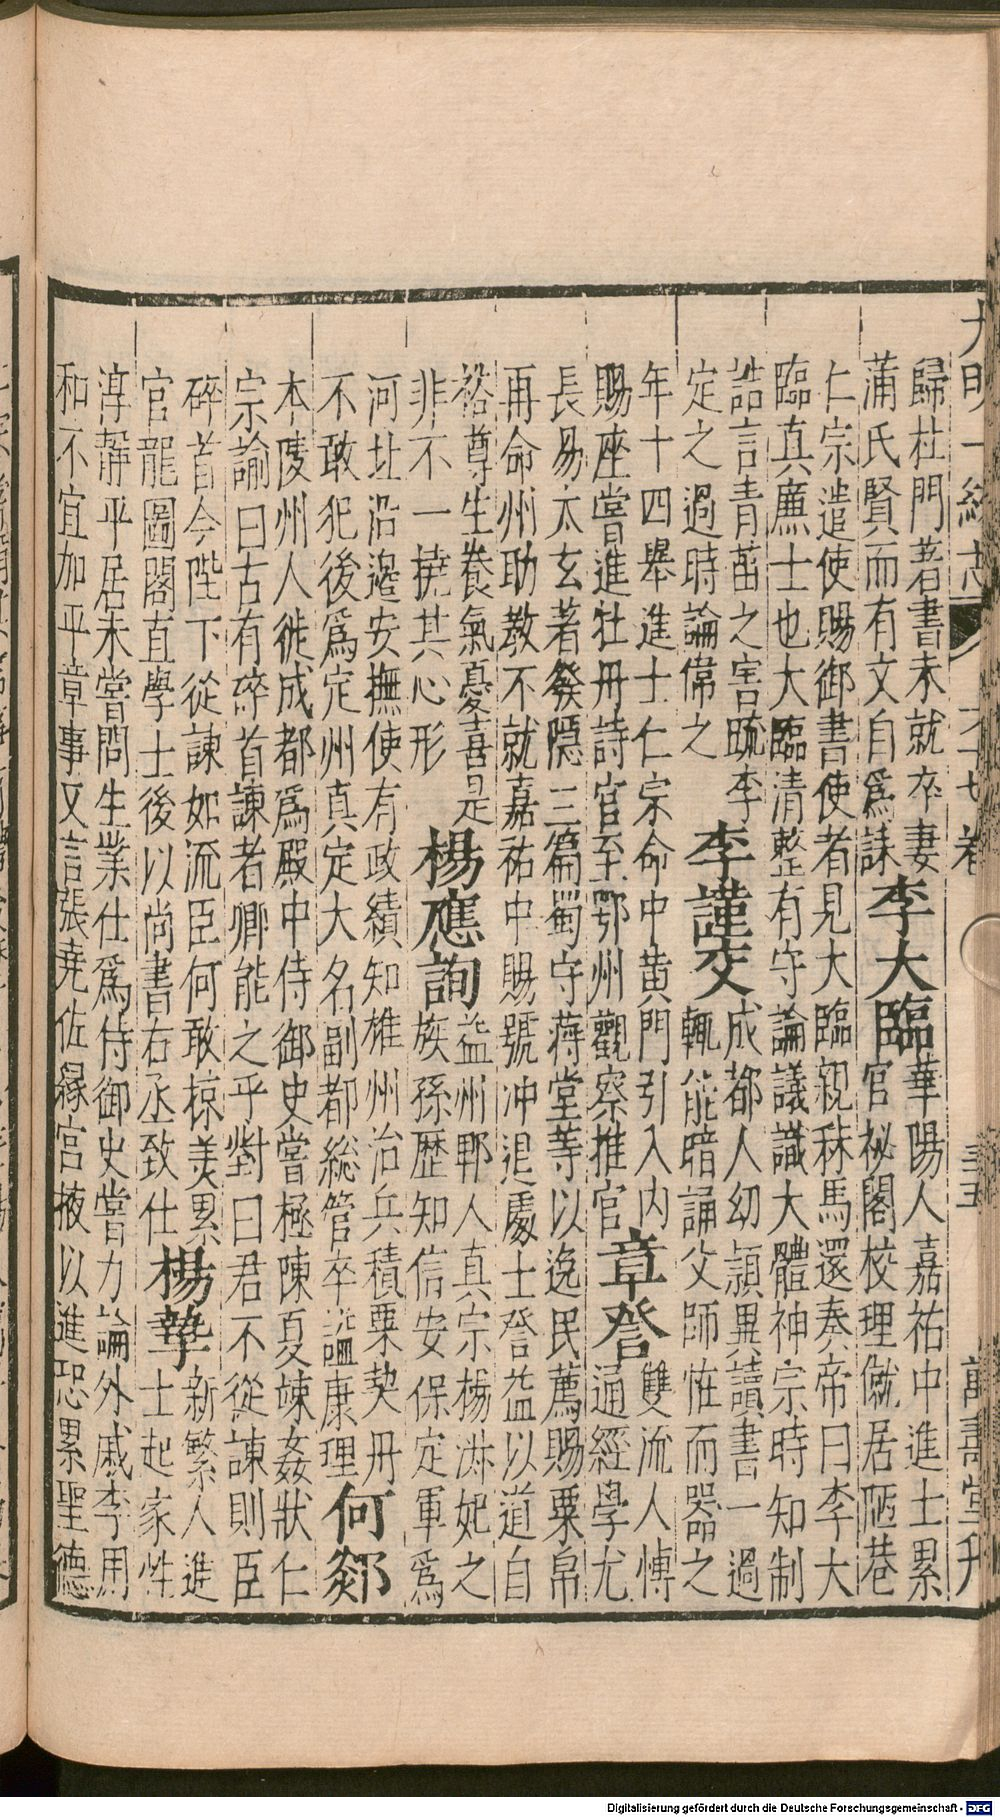 大明一統志
萬壽堂刊
歸杜門著書未就卒妻
蒲氏賢而有文自為誄
李大臨
華陽人嘉祐中進士累
官祕閣校理僦居陋巷
仁宗遣使賜御書使者見大臨親秣馬還奏帝曰李大
臨真廉士也大臨清整有守論議識大體神宗時知制
誥言青苗之害疏李
定之過時論偉之
李謹交
成都人幼頴異讀書一過
輒能暗誦父師怪而器之
年十四舉進士仁宗命中黄門引入内
賜座嘗進牡丹詩官至鄂州觀察推官
章詧
雙流人博
通經學尤
長易太玄著發隱三篇蜀守蔣堂等以逸民薦賜粟帛
再命州助教不就嘉祐中賜號冲退處士詧益以道自
裕尊生養氣憂喜是
非不一撓其心形
楊應詢
益州郫人真宗楊淑妃之
族孫歷知信安保定軍爲
河北沿邊安撫使有政績知雄州治兵積粟契丹
不敢犯後爲定州真定大名副都総管卒謚康理
何郯
本陵州人徙成都爲殿中侍御史嘗極陳夏竦姦狀仁
宗諭曰古有碎首諫者卿能之乎對曰君不從諫則臣
碎首今陛下從諫如流臣何敢掠美累
官龍圖閣直學士後以尚書右丞致仕
楊摯
新繁人進
士起家性
淳靜平居未嘗問生業仕爲侍御史嘗力論外戚李用
和不宜加平章事又言張堯佐緣宫掖以進恐累聖德
Digitalisierung gefördert durch die Deutsche Forschungsgemeinschaft - DFG